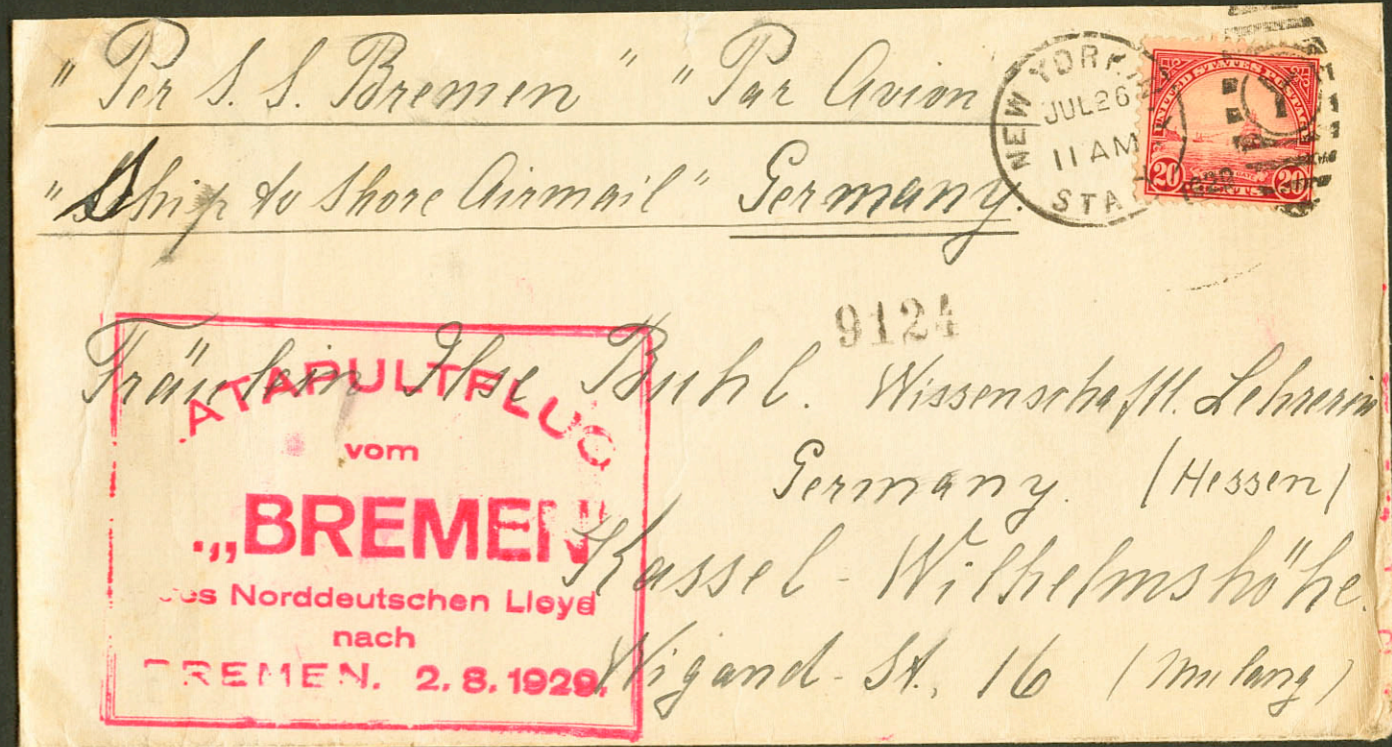 "Per S. S. Bremen" "Par Avion"
"Ship to Shore Airmail" Germany.
NEW YORK, N.Y.
JUL 26
11 AM
STA
1929
UNITED STATES POSTAGE
20 20
9124
Fräulein Ilse Buhl. Wissenschaftl. Lehrerin
Germany. (Hessen)
Kassel - Wilhelmshöhe.
Wigand - St. 16 (Mulang)
ATAPULTFLUG
vom
„BREMEN"
des Norddeutschen Lloyd
nach
BREMEN. 2.8.1929.